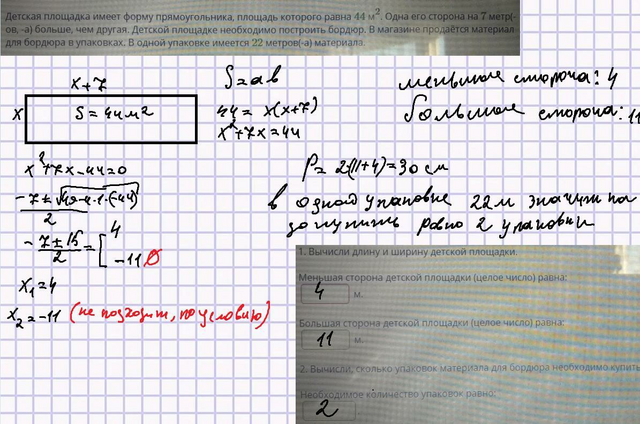 Детская площадка имеет форму прямоугольника, площадь которого равна 44 м². Одна его сторона на 7 метр(-
ов, -а) больше, чем другая. Детской площадке необходимо построить бордюр. В магазине продаётся материал
для бордюра в упаковках. В одной упаковке имеется 22 метров(-а) материала.
x+7
x
S = 44 м²
S=ab
44 = x(x+7)
x²+7x=44
меньшая сторона: 4
большая сторона: 11
x²+7x-44=0
-7±√49-4·1·(-44)
2
-7±15
2
= [ 4
-11 ∅
x₁=4
x₂=-11 (не подходит, по условию)
P= 2·(11+4)=30 см
в одной упаковке 22м значит на
до купить равно 2 упаковки
1. Вычисли длину и ширину детской площадки.
Меньшая сторона детской площадки (целое число) равна:
4 м.
Большая сторона детской площадки (целое число) равна:
11 м.
2. Вычисли, сколько упаковок материала для бордюра необходимо купить
Необходимое количество упаковок равно:
2